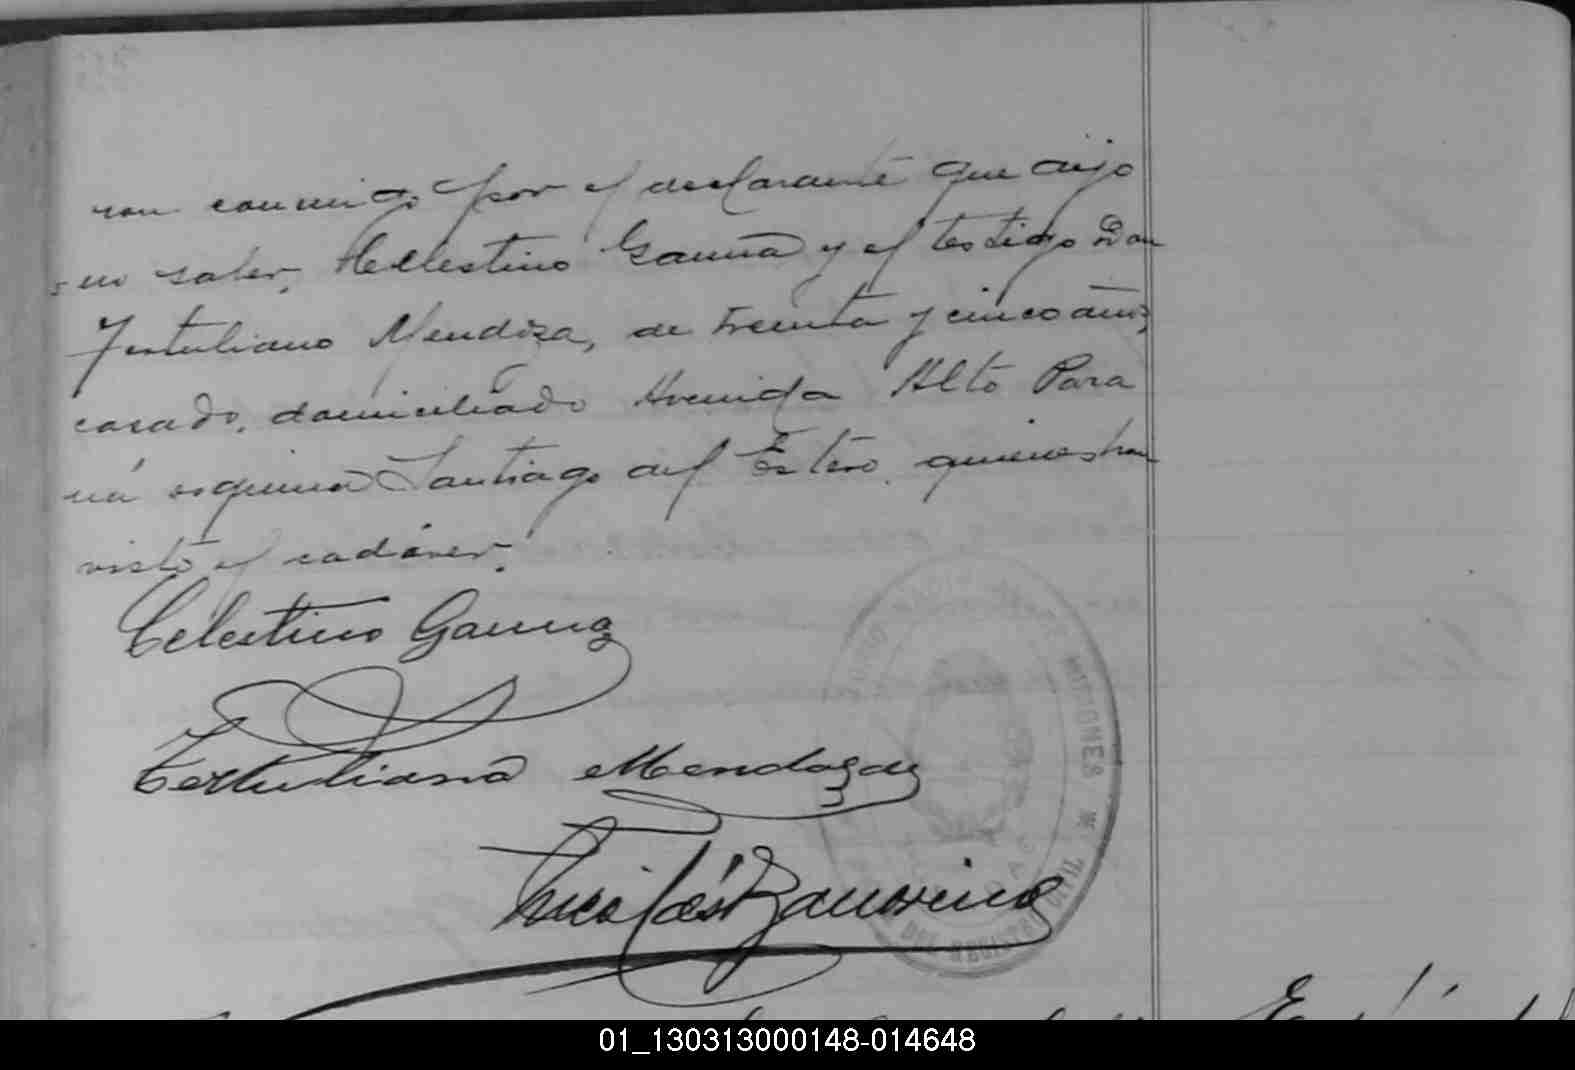 ron conmigo, por el declarante que dijo
no saber, Celestino Gauna y el testigo Don
Tertuliano Mendoza, de treinta y cinco años,
casado, domiciliado Avenida Alto Para
ná esquina Santiago del Estero, quienes han
visto el cadáver.
Celestino Gauna
Tertuliano Mendoza
Nicolás
DEL REGISTRO CIVIL
01_130313000148-014648